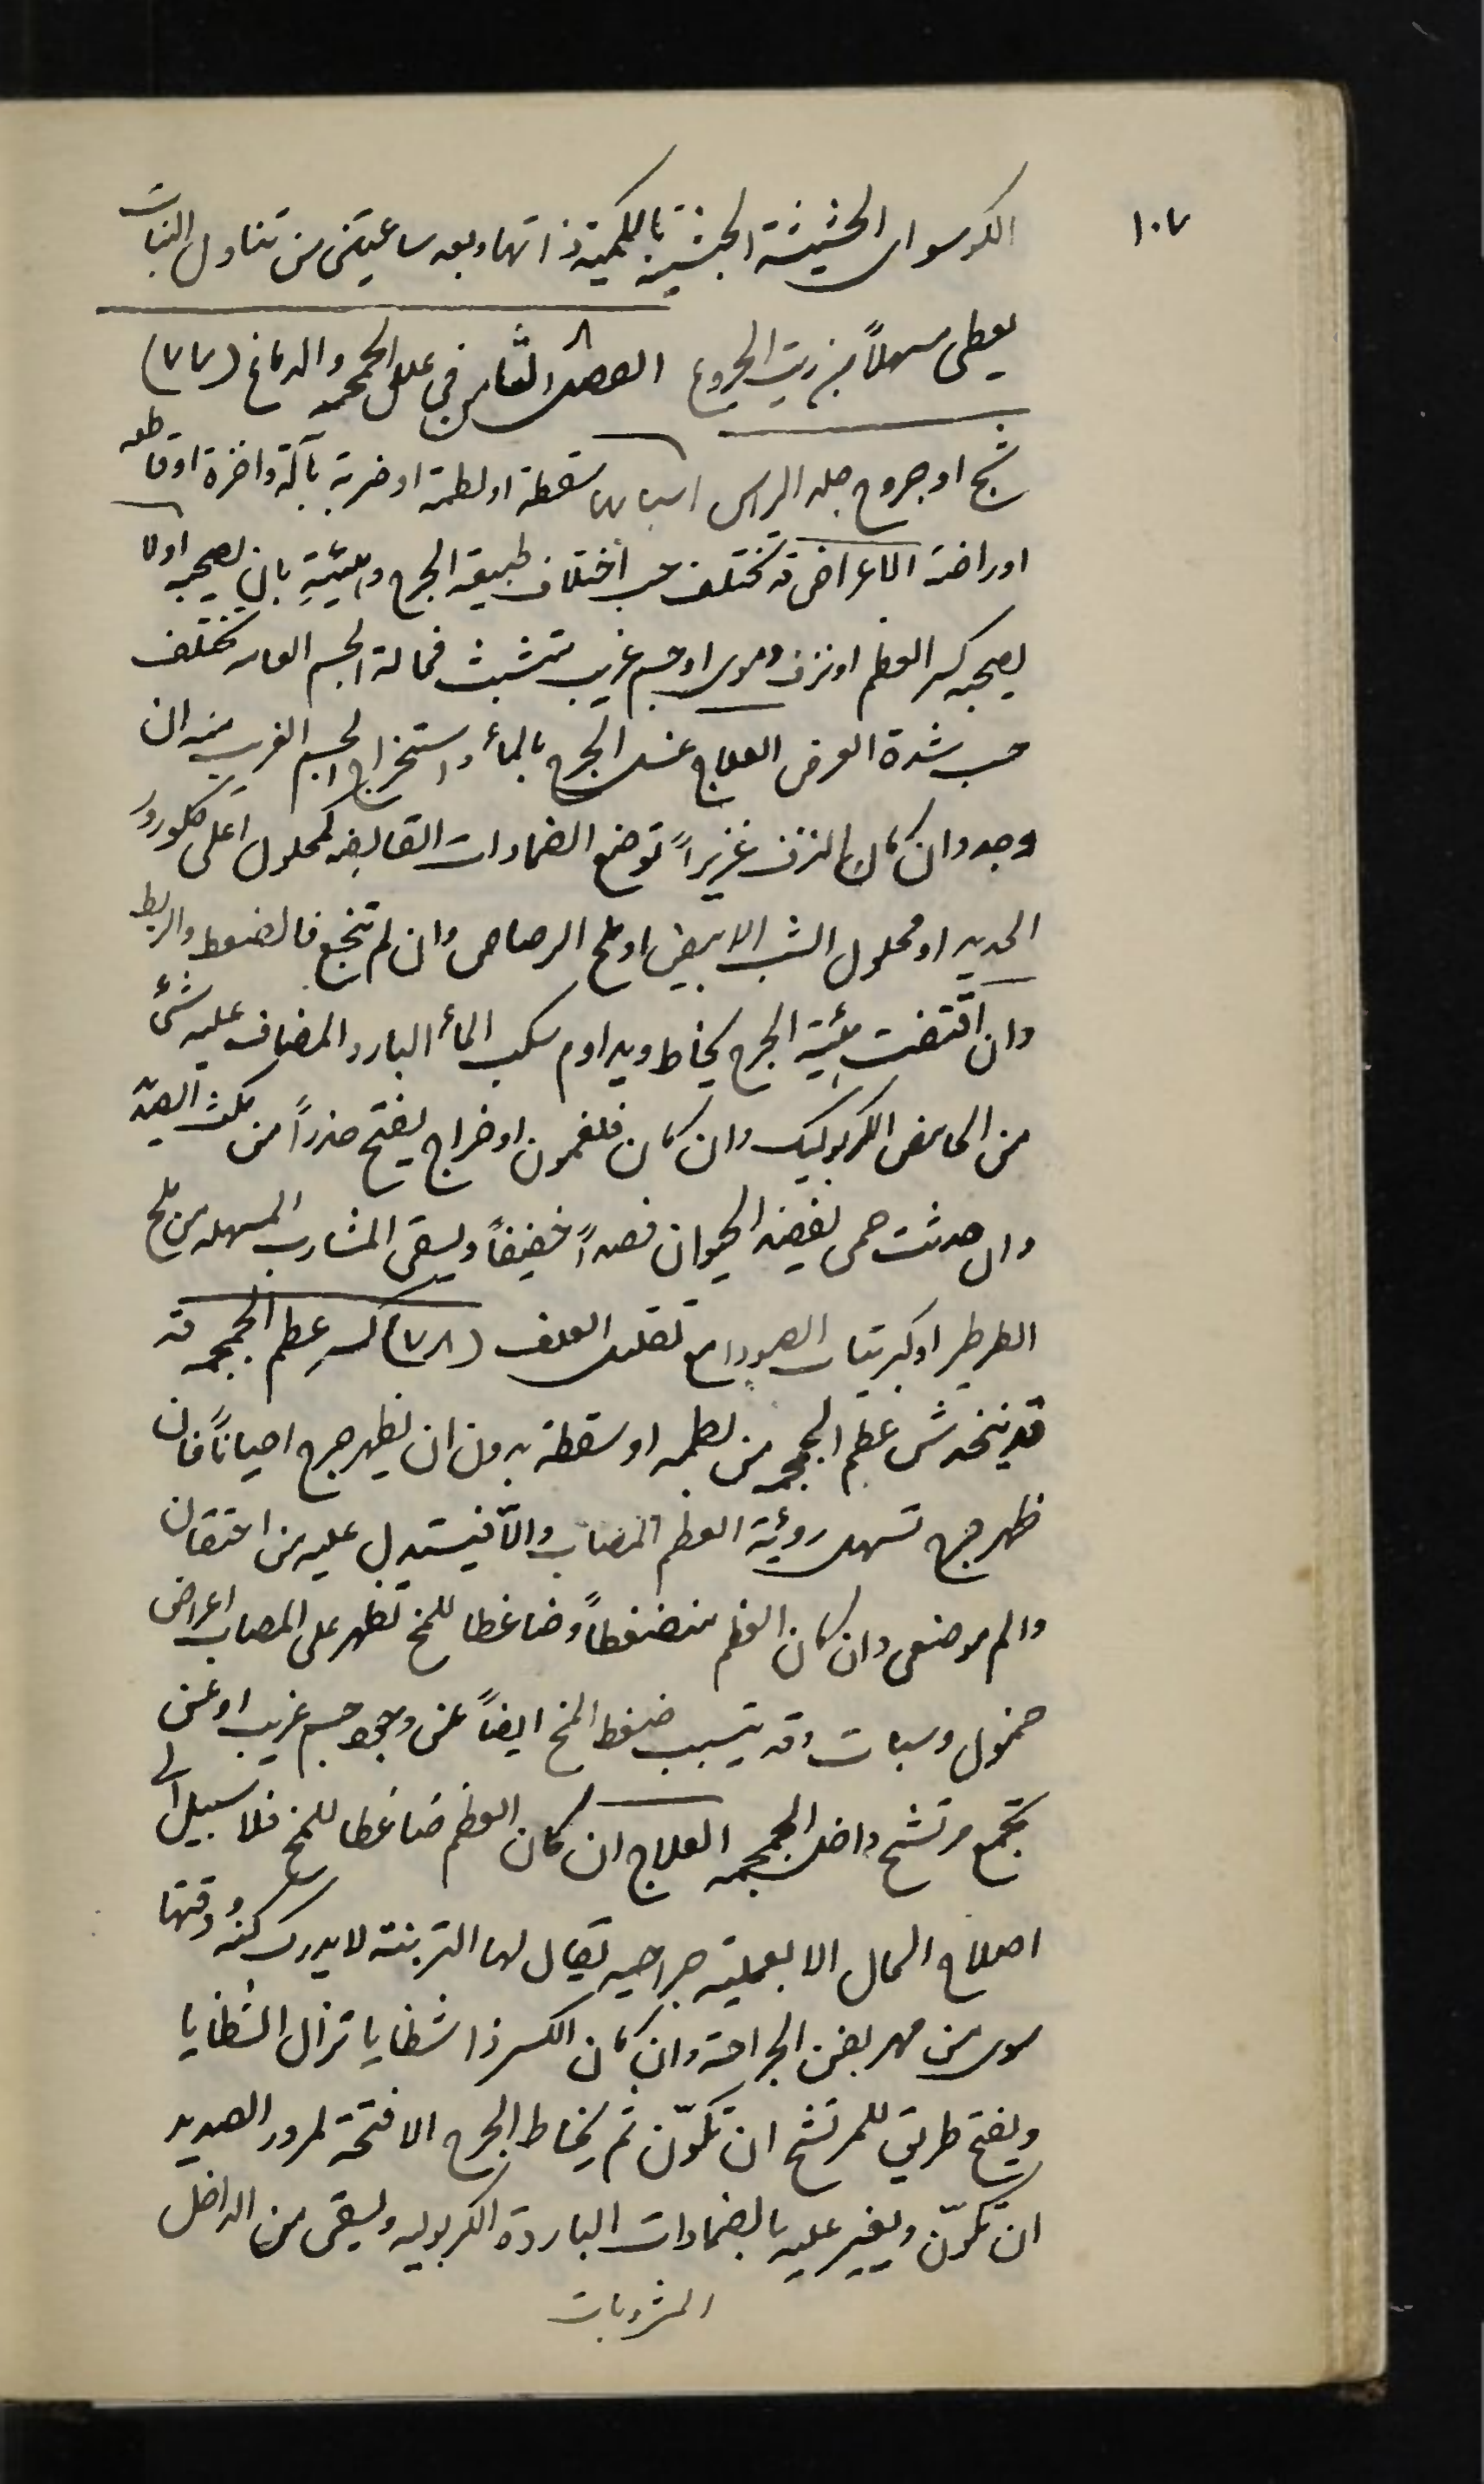 ١٠٧
الكوسو اي الحشيشة الحبشية بالكمية ذاتها وبعد ساعتين من تناول النبات
يعطى مسهلاً من زيت الخروع الفصل الثامن في علل الجمجمه والدماغ (٧٧)
شج او جروح جلد الراس اسبابها سقطة او لطمة او ضربة بآلة واخزة او قاطعه
او راضة الاعراض قد تختلف حسب اختلاف طبيعة الجرح وهيئيته بان يصحبه اولا
يصحبه كسر العظم او نزف دموي او جسم غريب متشبث فحالة الجسم العامه تختلف
حسب شدة العرض العلاج غسل الجرح بالمأ واستخراج الجسم الغريب منه ان
وجد وان كان النزف غزيراً توضع الضمادات القابضه كمحلول اعلى كلورور
الحديد او محلول الشب الابيض او ملح الرصاص وان لم تنجع فالضغط والربط
وان اقتضت هيئية الجرح يخاط ويداوم سكب المأ البارد المضاف عليه شئ
من الحامض الكربوليك وان كان فلغمون او خراج يفتح حذراً من مكث المدة
وان حدثت حمى يفصد الحيوان فصداً خفيفاً ويسقى المشارب المسهله من ملح
الطرطير او كبريتات الصودا مع تقليل العلف (٧٨) كسر عظم الجمجمه قد
قد ينخدش عظم الجمجمه من لطمه او سقطة بدون ان يظهر جرح احياناً فان
ظهر جرح تسهل رؤية العظم المصاب والّا فيستدل عليه من احتقان
والم موضعي وان كان العظم منضغطاً وضاغطا للمخ تظهر على المصاب اعراض
خمول وسبات وقد يتسبب ضغط المخ ايضاً عن وجود جسم غريب او عن
تجمع مرتشح داخل الجمجمه العلاج ان كان العظم ضاغطا للمخ فلا سبيل الى
اصلاح الحال الا بعملية جراحيه يقال لها التربنة لا يدرك كنه دقتها
سوى من مهر بفن الجراحة وان كان الكسر ذا شظايا تزال الشظايا
ويفتح طريق للمرتشح ان تكوّن ثم يخاط الجرح الا فتحة لمرور الصديد
ان تكوّن ويغير عليه بالضمادات الباردة الكربوليه ويسقى من الداخل
المشروبات